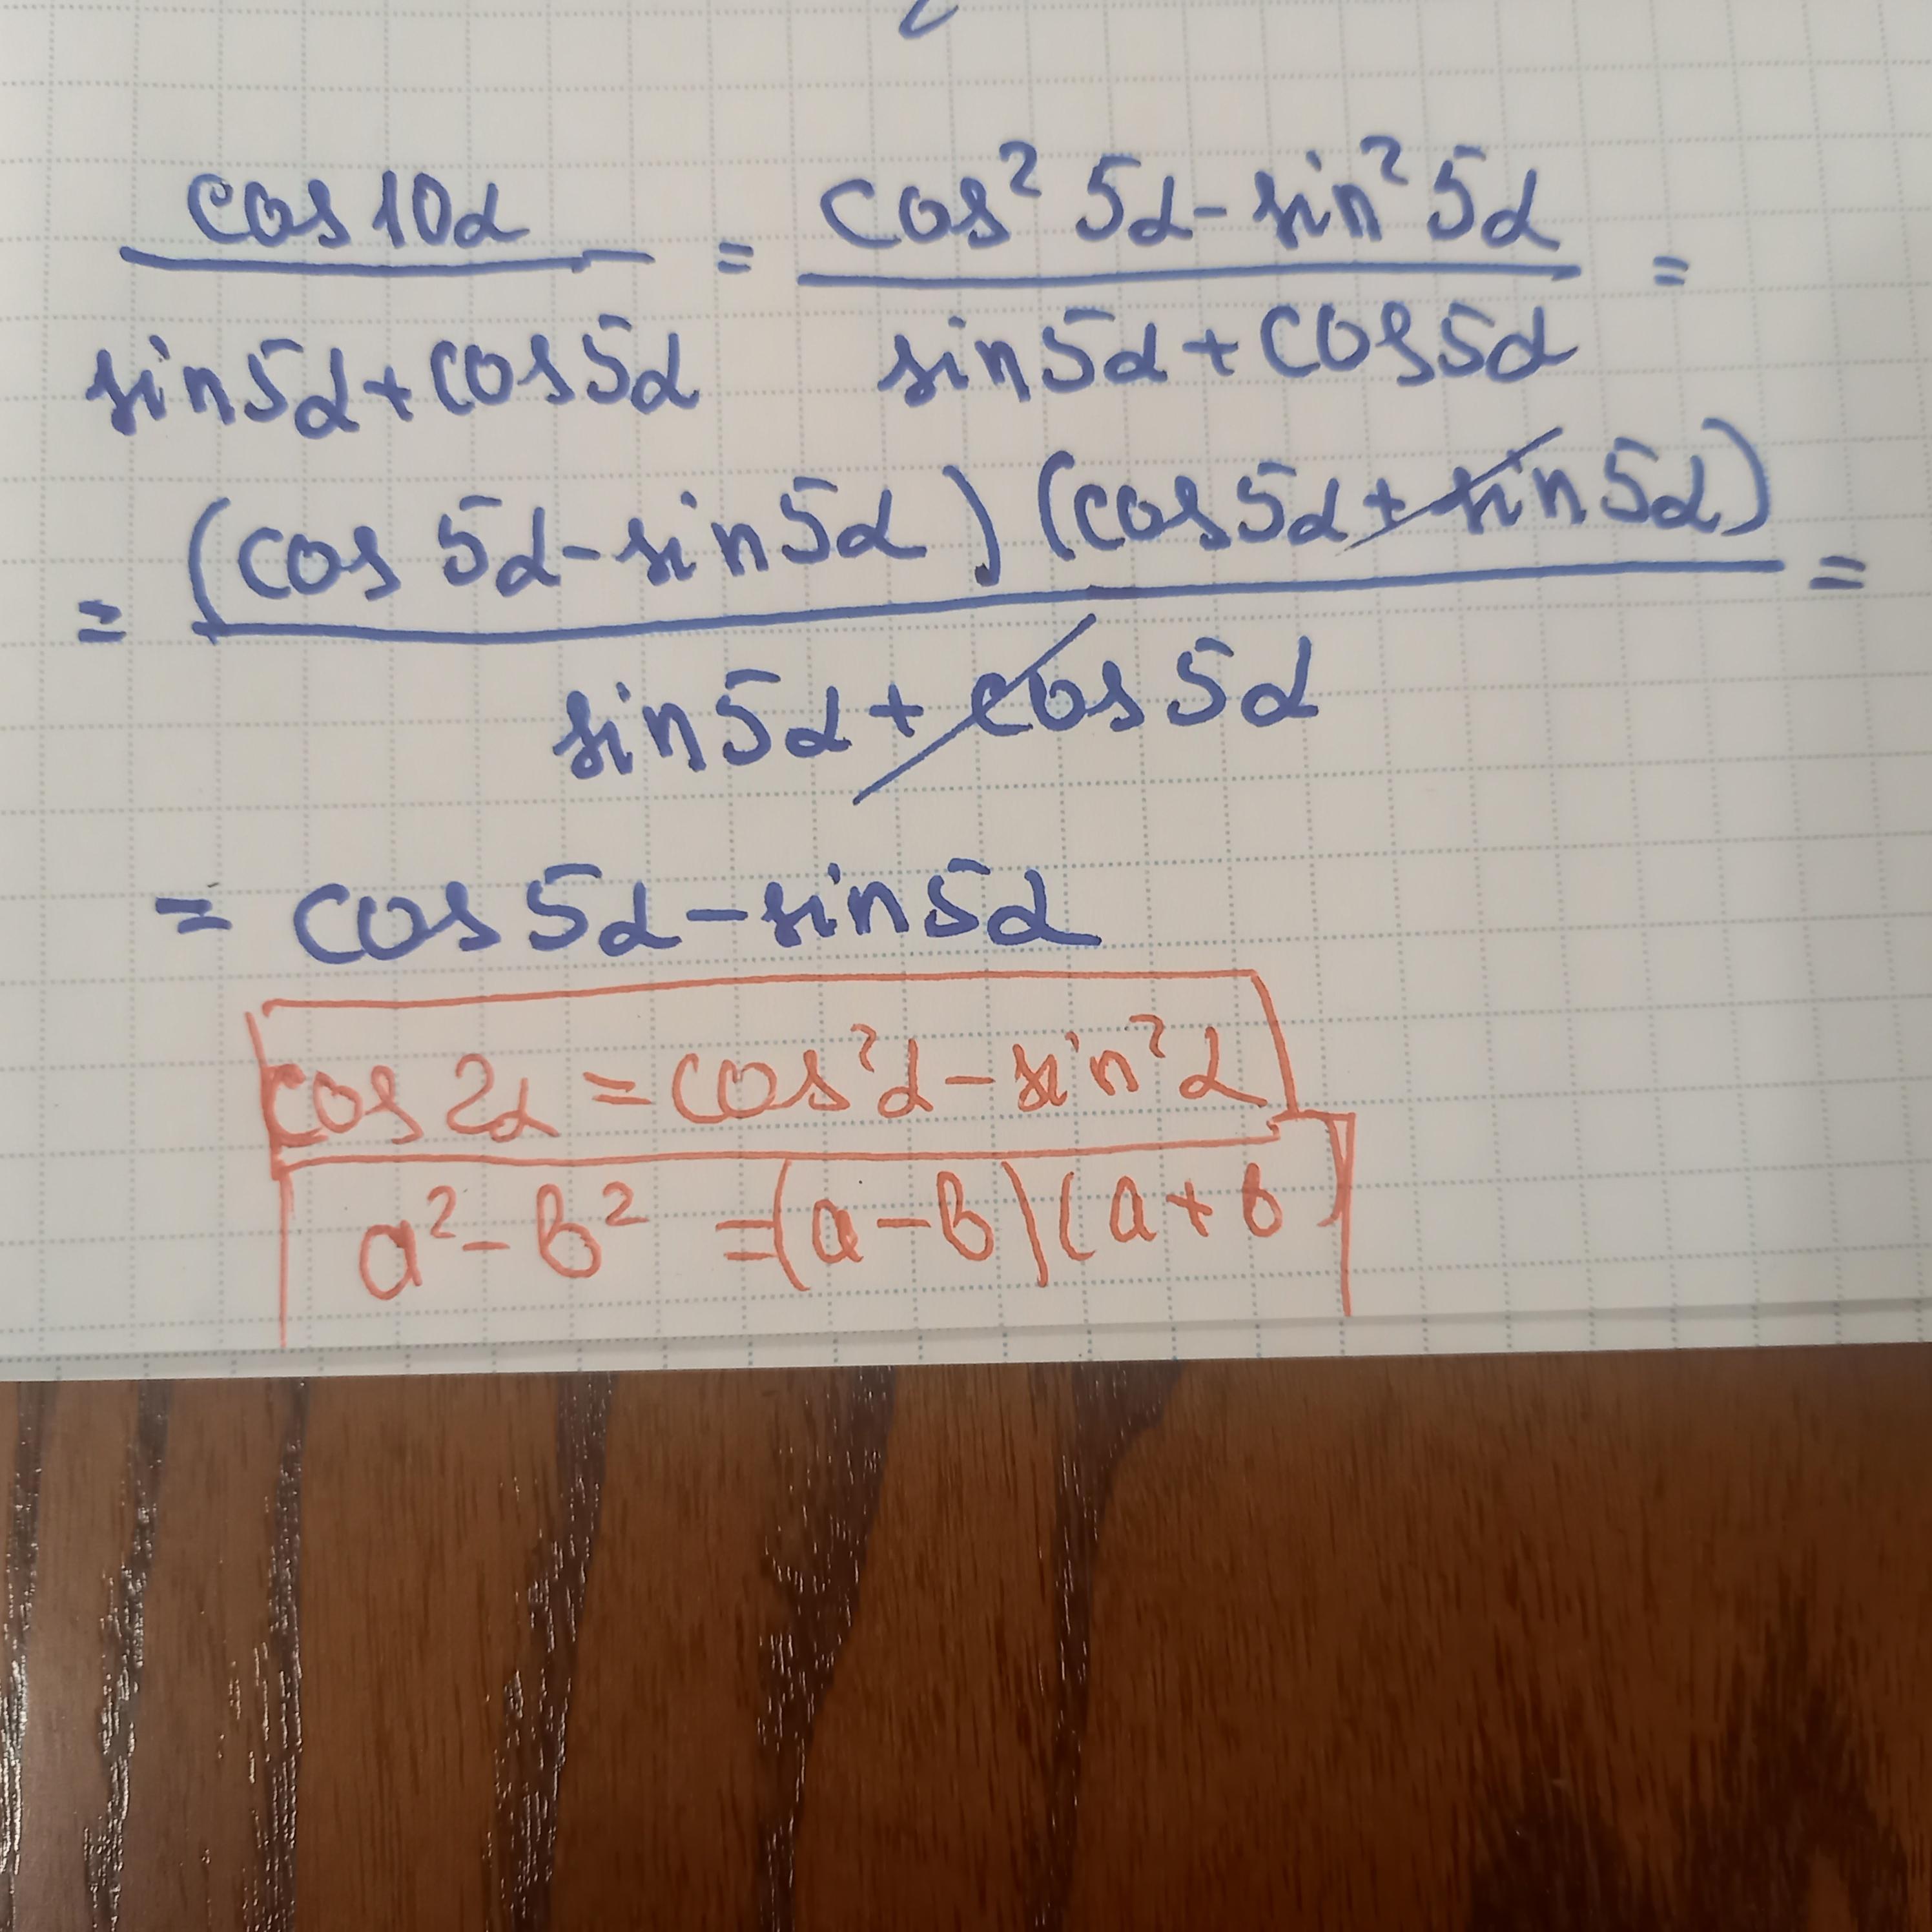 cos10α / sin5α+cos5α = cos² 5α-sin² 5α / sin5α+cos5α =
= (cos 5α-sin5α) (cos5α+sin5α) / sin5α+cos5α =
= cos5α-sin5α
cos2α=cos²α-sin²α
a²-b² =(a-b)(a+b)